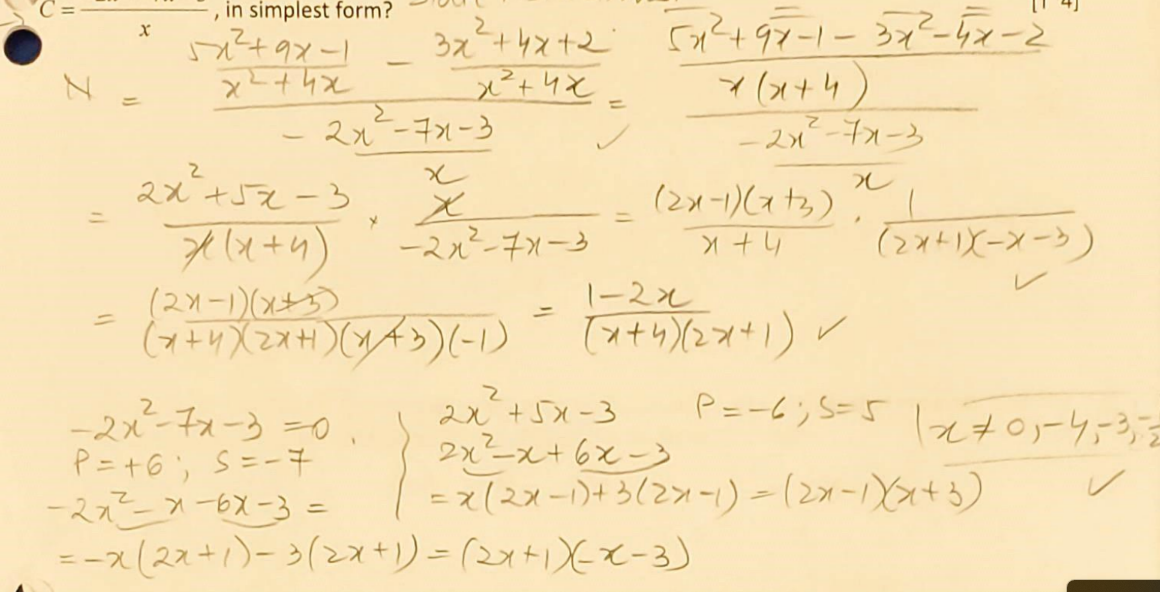 C = ――― / x , in simplest form?
N = ((5x²+9x-1)/(x²+4x) - (3x²+4x+2)/(x²+4x)) / ((-2x²-7x-3)/x) = ((5x²+9x-1-3x²-4x-2)/(x(x+4))) / ((-2x²-7x-3)/x) ✓
= (2x²+5x-3)/(x(x+4)) × x/(-2x²-7x-3) = ((2x-1)(x+3))/(x+4) · 1/((2x+1)(-x-3)) ✓
= ((2x-1)(x+3))/((x+4)(2x+1)(x+3)(-1)) = (1-2x)/((x+4)(2x+1)) ✓
-2x²-7x-3=0
P=+6; S=-7
-2x²-x-6x-3=
=-x(2x+1)-3(2x+1)=(2x+1)(-x-3)
2x²+5x-3 P=-6; S=5
2x²-x+6x-3
=x(2x-1)+3(2x-1)=(2x-1)(x+3)
x≠0,-4,-3, ✓